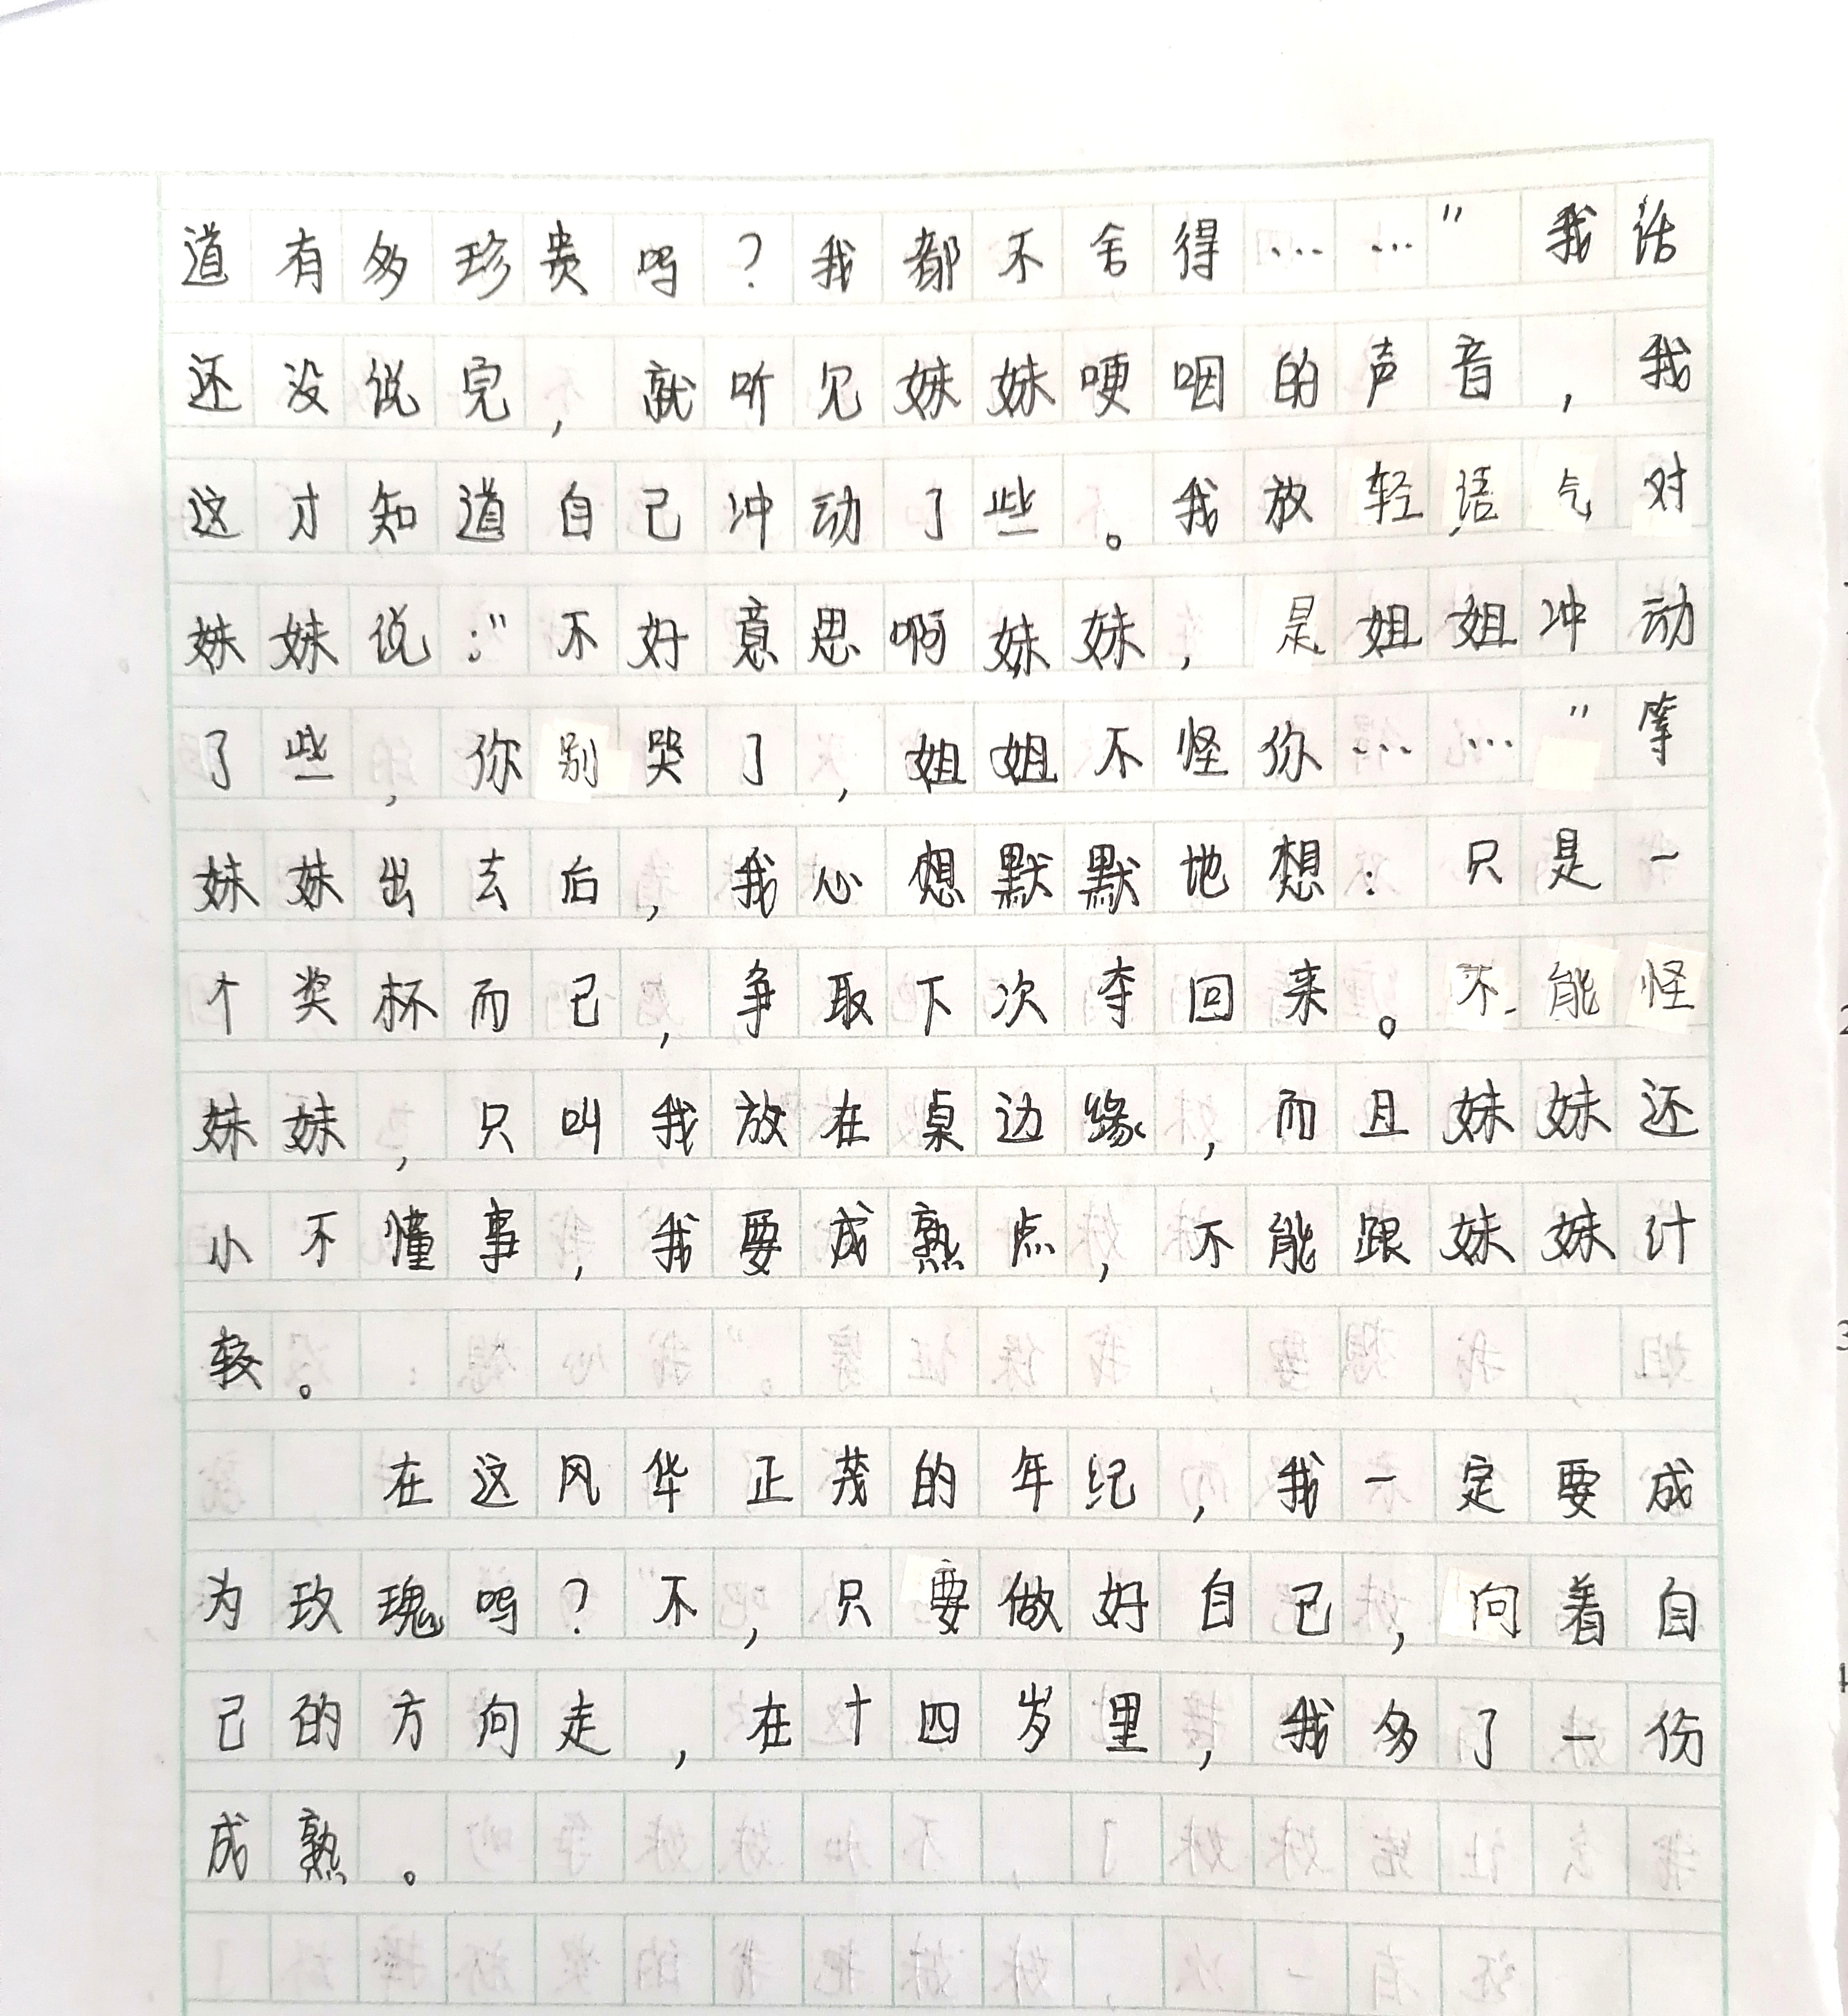 道有多珍贵吗？我都不舍得……”我话
还没说完，就听见妹妹哽咽的声音，我
这才知道自己冲动了些。我放轻语气对
妹妹说：“不好意思啊妹妹，是姐姐冲动
了些，你别哭了，姐姐不怪你……”等
妹妹出去后，我心想默默地想：只是一
个奖杯而已，争取下次夺回来。不能怪
妹妹，只叫我放在桌边缘，而且妹妹还
小不懂事，我要成熟点，不能跟妹妹计
较。
在这风华正茂的年纪，我一定要成
为玫瑰吗？不，只要做好自己，向着自
己的方向走，在十四岁里，我多了一份
成熟。